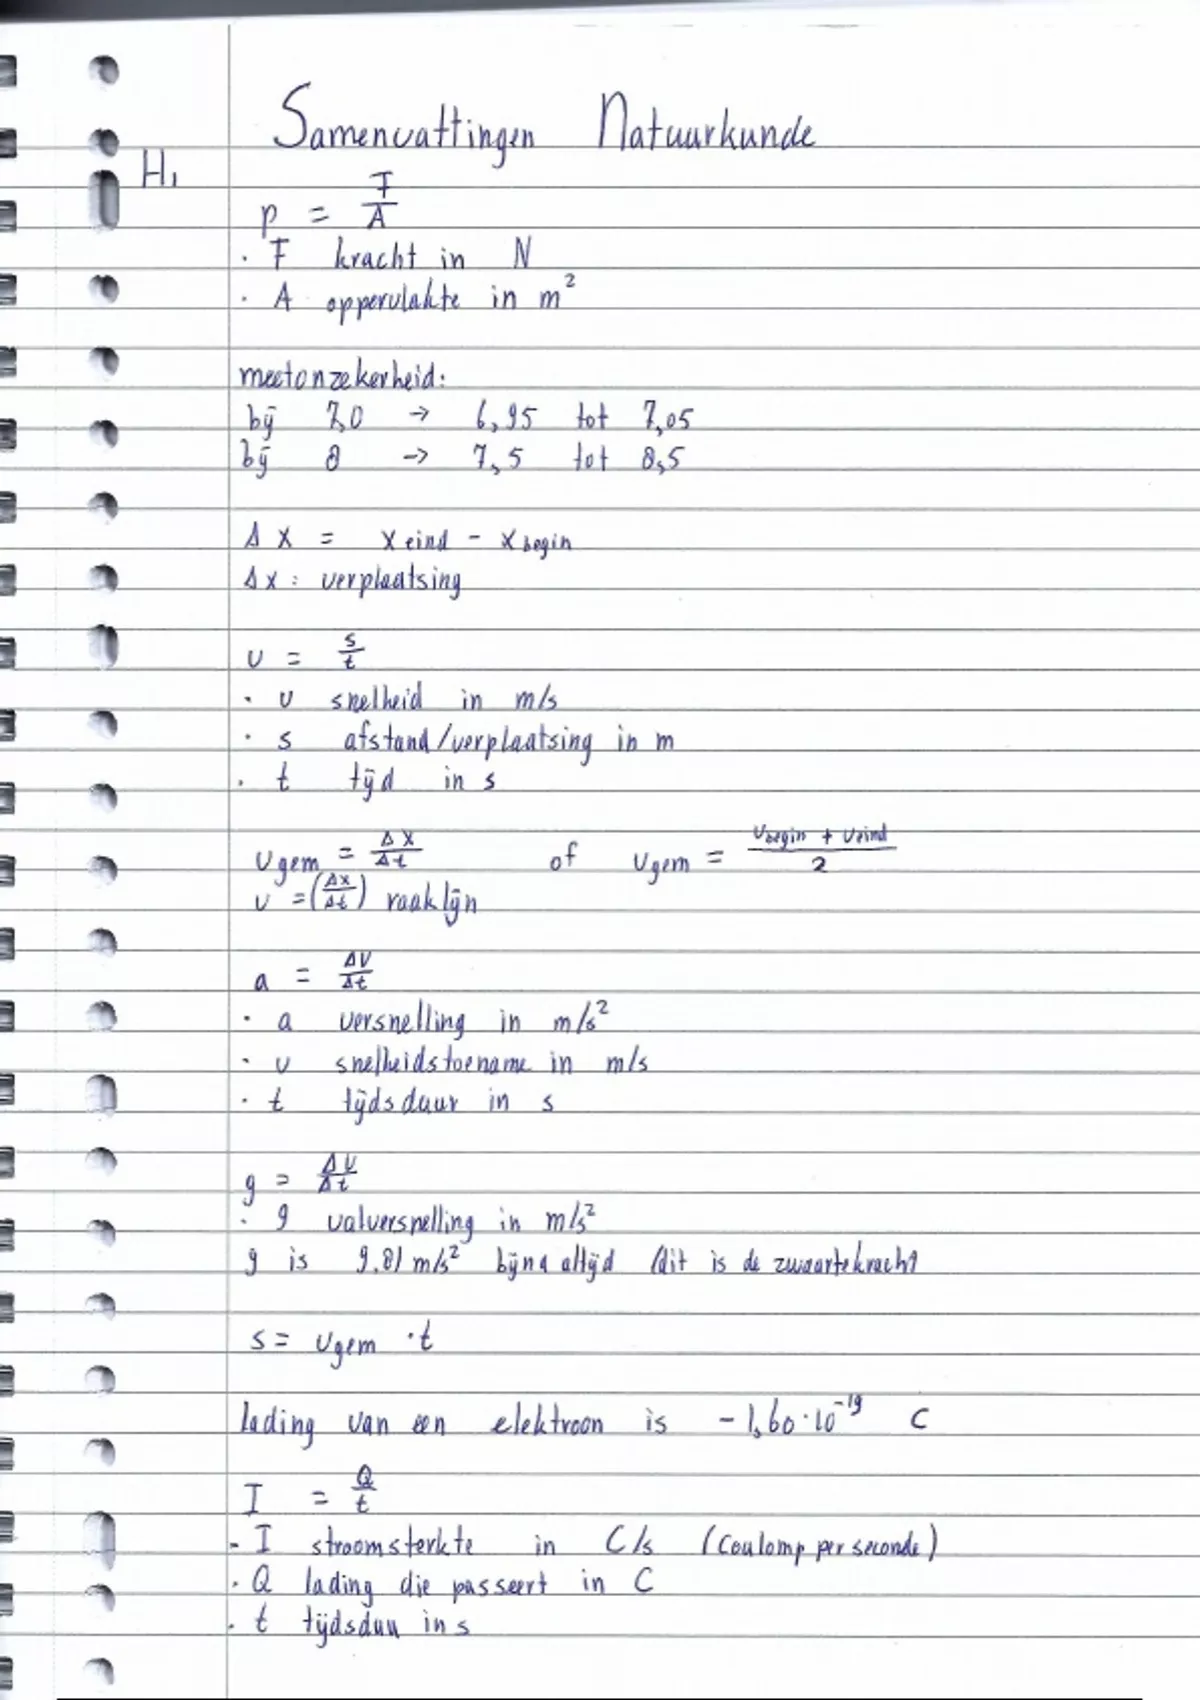 Samenvattingen Natuurkunde
H1
p = F/A
· F kracht in N
· A oppervlakte in m²
meetonzekerheid:
bij 7,0 → 6,95 tot 7,05
bij 8 → 7,5 tot 8,5
Δx = x eind - x begin
Δx: verplaatsing
v = s/t
· v snelheid in m/s
· s afstand/verplaatsing in m
· t tijd in s
v gem = Δx/Δt of v gem = (v begin + v eind)/2
v = (Δx/Δt) raaklijn
a = Δv/Δt
· a versnelling in m/s²
· v snelheidstoename in m/s
· t tijdsduur in s
g = Δv/Δt
· g valversnelling in m/s²
g is 9.81 m/s² bijna altijd (dit is de zwaartekracht
s = v gem · t
lading van een elektroon is -1,60·10⁻¹⁹ C
I = Q/t
- I stroomsterkte in C/s (Coulomp per seconde)
· Q lading die passeert in C
· t tijdsduu in s